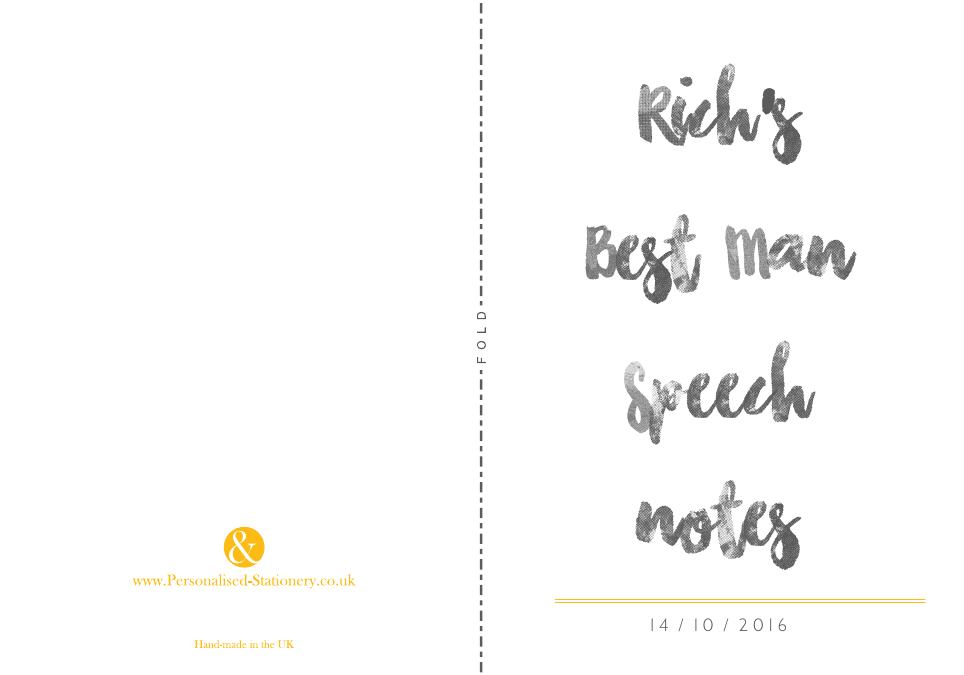 &
www.Personalised-Stationery.co.uk
Hand-made in the UK
FOLD
Rich's
Best Man
Speech
notes
14 / 10 / 2016